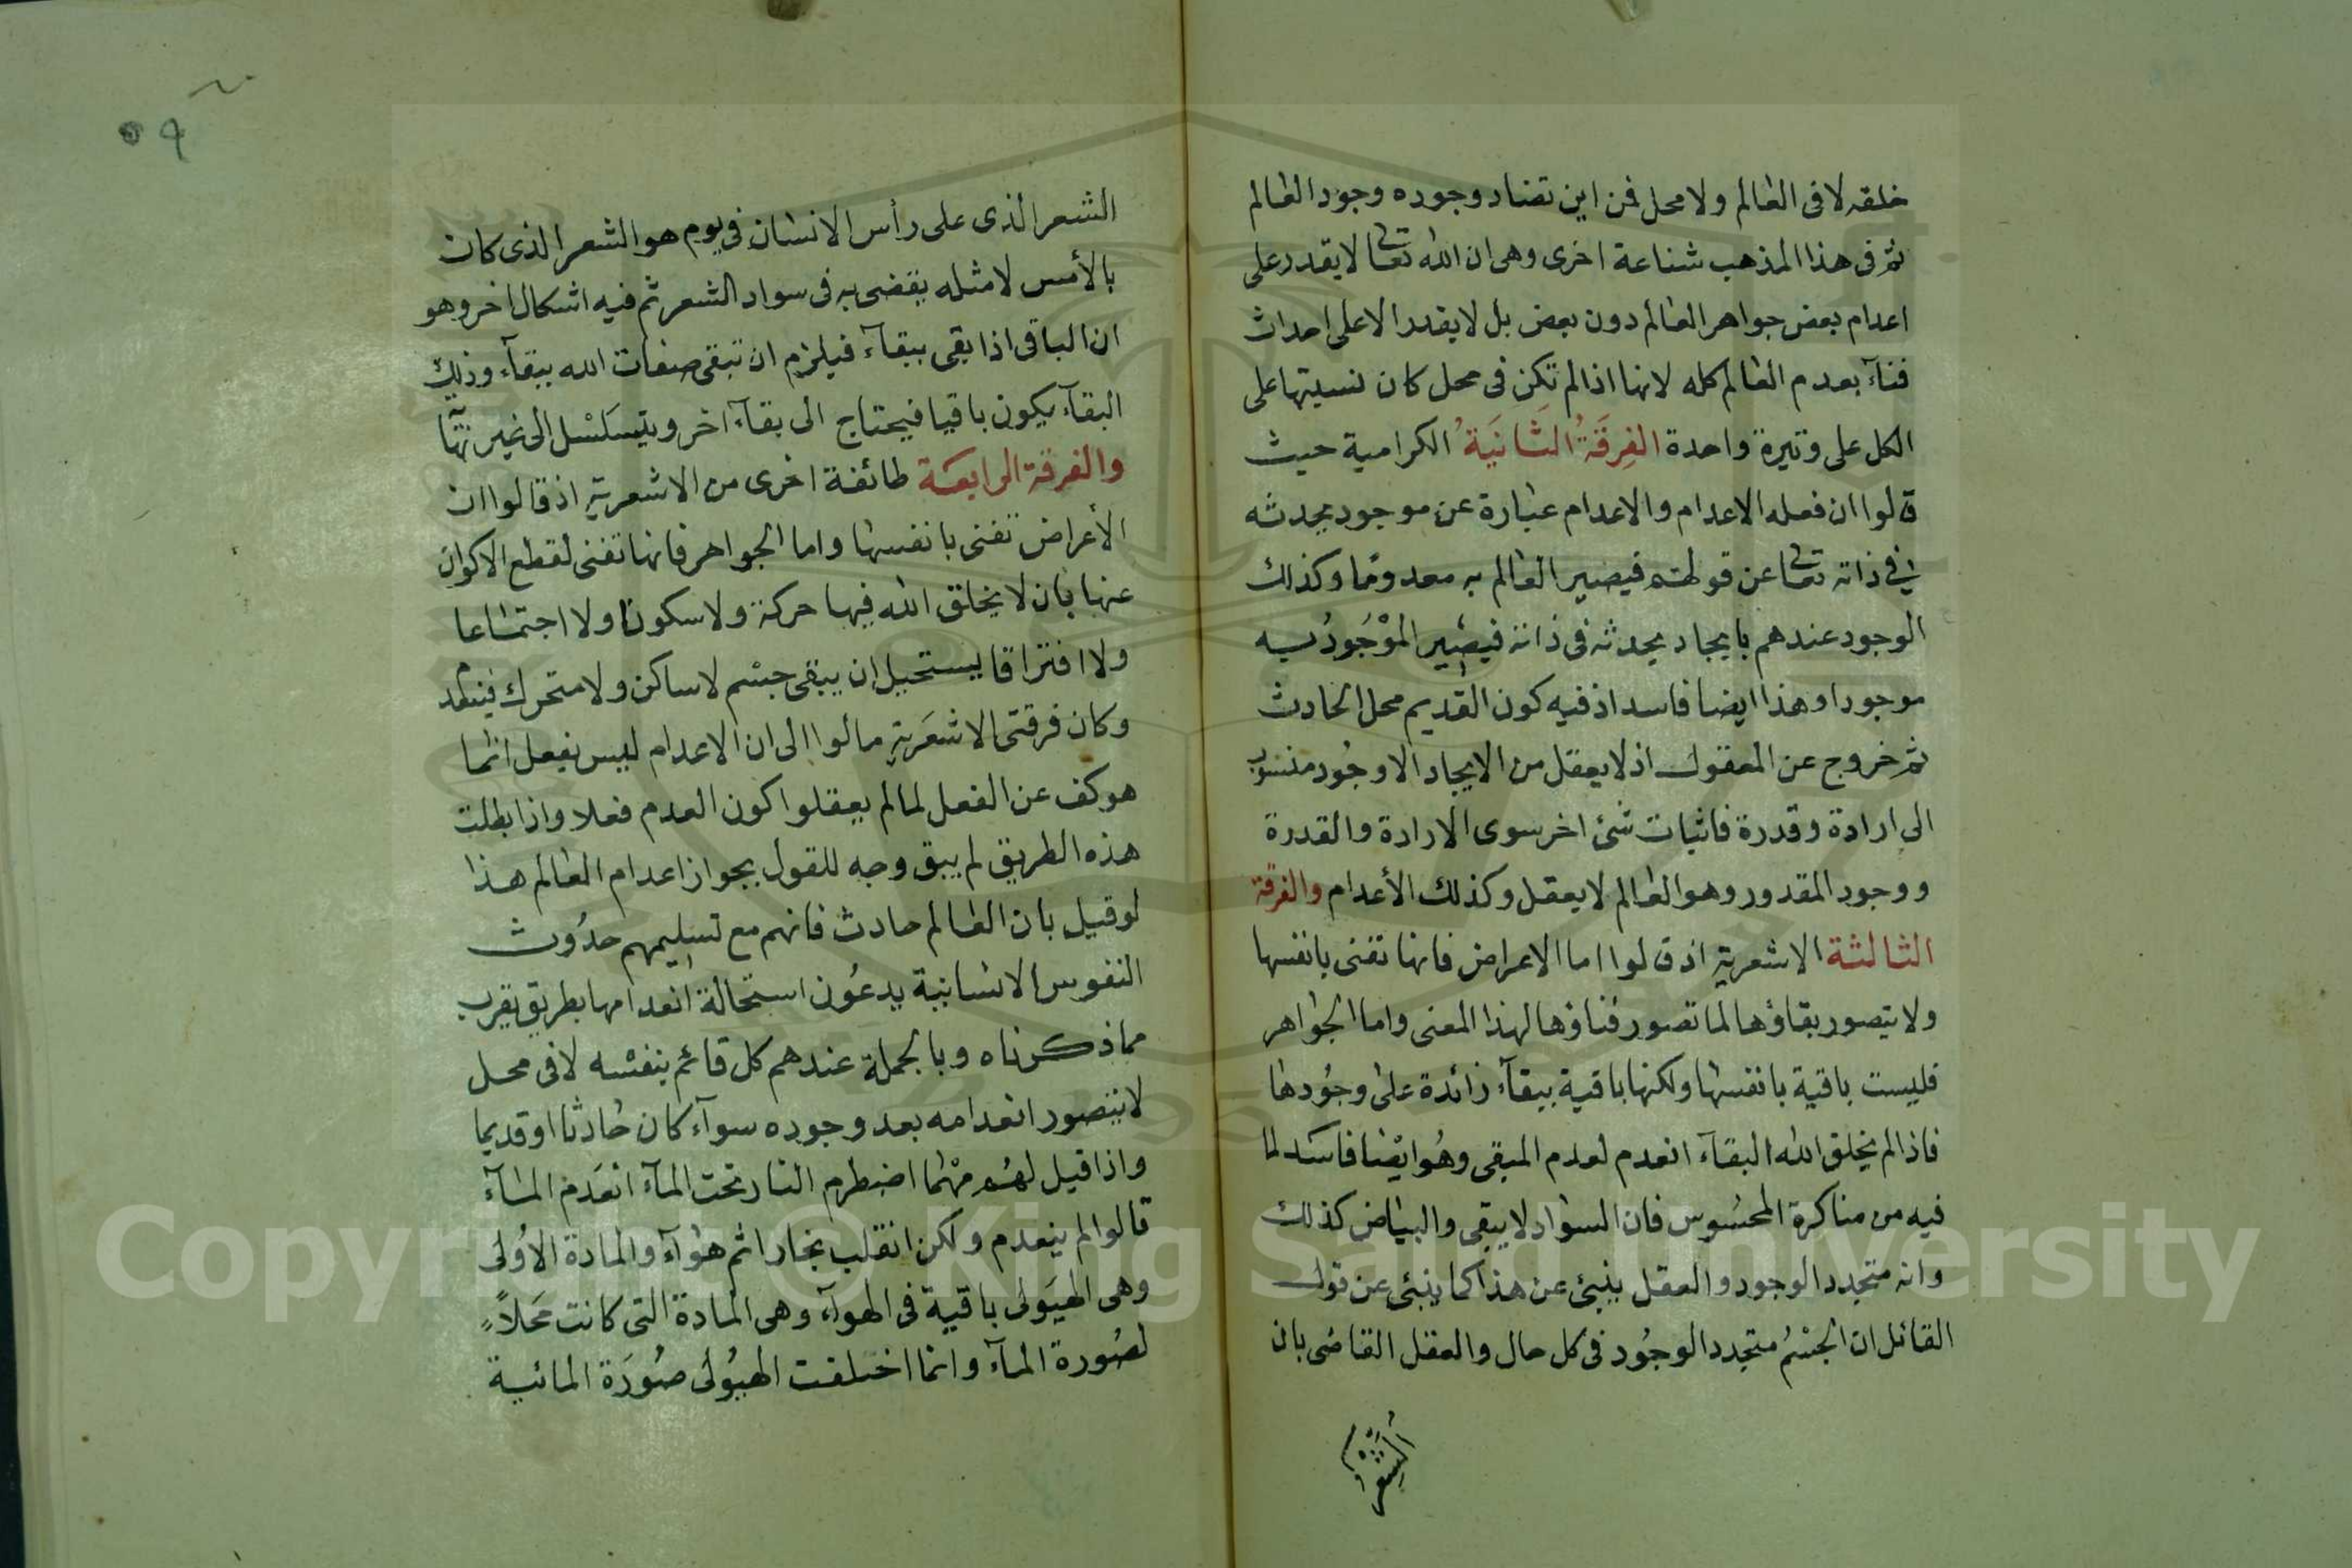 خلقه لا فى العالم ولا محل فمن اين تضاد وجوده وجود العالم
ثم فى هذا المذهب شناعة اخرى وهى ان الله تعالى لا يقدر على
اعدام بعض جواهر العالم دون بعض بل لا يقدر الا على احداث
فنآء بعدم العالم كله لانها اذا لم تكن فى محل كان نسبتها على
الكل على وتيرة واحدة الفِرقَةُ الثَانيَةُ الكرامية حيث
قالوا ان فعله الاعدام والاعدام عبارة عن موجود يحدثه
فى ذاته تعالى عن قولهم فيصير العالم به معدومًا وكذلك
الوجود عندهم بايجاد يحدثه فى ذاته فيصير الموْجُودُ به
موجودا وهذا ايضا فاسد اذ فيه كون القديم محل الحادث
ثم خروج عن المعقول اذ لا يعقل من الايجاد الا وجُود منسوب
الى ارادة وقدرة فاثبات شئ اخر سوى الارادة والقدرة
ووجود المقدور وهو العالم لا يعقل وكذلك الأعدام والفرقة
الثالثة الاشعرية اذ قالوا اما الاعراض فانها تفنى بانفسها
ولا يتصور بقاؤها لما تصور فناؤها لهذا المعنى واما الجواهر
فليست باقية بانفسها ولكنها باقية ببقآء زائدة على وجُودها
فاذا لم يخلق الله البقآء انعدم لعدم المبقى وهُو ايْضا فاسد لما
فيه من مناكرة المحسُوس فان السواد لا يبقى والبياض كذلك
وانه متجدد الوجود والعقل ينبئ عن هذا كما ينبئ عن قول
القائل ان الجسْمُ متجدد الوجُود فى كل حال والعقل القاضى بان
الشعر
٥٩
الشعر الذى على رأس الانسان فى يوم هو الشعر الذى كان
بالأمس لا مثله يقضى به فى سواد الشعر ثم فيه اشكال اخر وهو
ان الباقى اذا بقى ببقآء فيلزم ان تبقى صفات الله ببقآء وذلك
البقآء يكون باقيا فيحتاج الى بقآء اخر ويتسَلسْل الى غير نهآية
والفرقة الرابعَة طائفة اخرى من الاشعرية اذ قالوا ان
الأعراض تفنى بانفسها واما الجواهر فانها تفنى لقطع الاكوان
عنها بان لا يخلق الله فيها حركة ولا سكونا ولا اجتماعا
ولا افتراقا يستحيل ان يبقى جسْم لا ساكن ولا متحرك فينعدم
وكان فرقتى الاشعَرية مالوا الى ان الاعدام ليس بفعل انما
هو كف عن الفعل لما لم يعقلوا كون العدم فعلا واذا بطلت
هذه الطريق لم يبق وجه للقول بجواز اعدام العالم هذا
لو قيل بان العالم حادث فانهم مع تسليمهم حدُوث
النفوس الانسانية يدعُون استحالة انعدامها بطريق يقرب
مما ذكرناه وبالجملة عندهم كل قائم بنفسْه لا فى محل
لا يتصور انعدامه بعد وجوده سوآء كان حادثا او قديما
واذا قيل لهم مهْما اضطرم النار تحت المآء انعَدم المآء
قالوا لم ينعدم ولكن انقلب بخارا ثم هوآء والمادة الاُولى
وهى الهيَولى باقية فى الهوآء وهى المادة التى كانت محَلاً
لصُورة المآء وانما اختلفت الهيُولى صُورَة المائية
Copyright © King Saud University